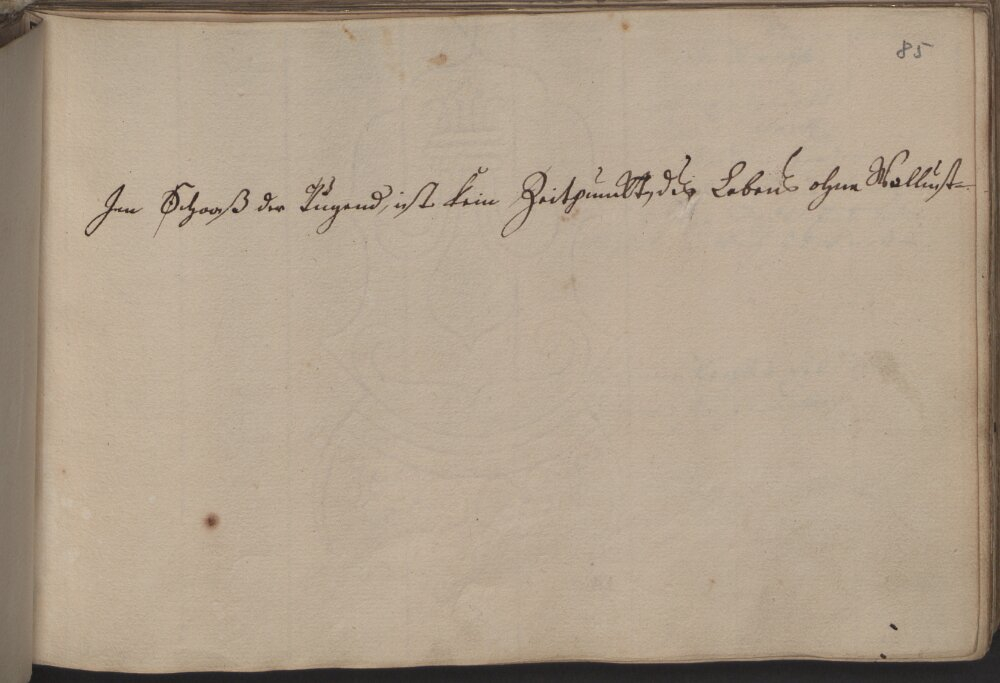 85
Im Schooß der Tugend, ist kein Zeitpunckt, des Lebens ohne Wollust